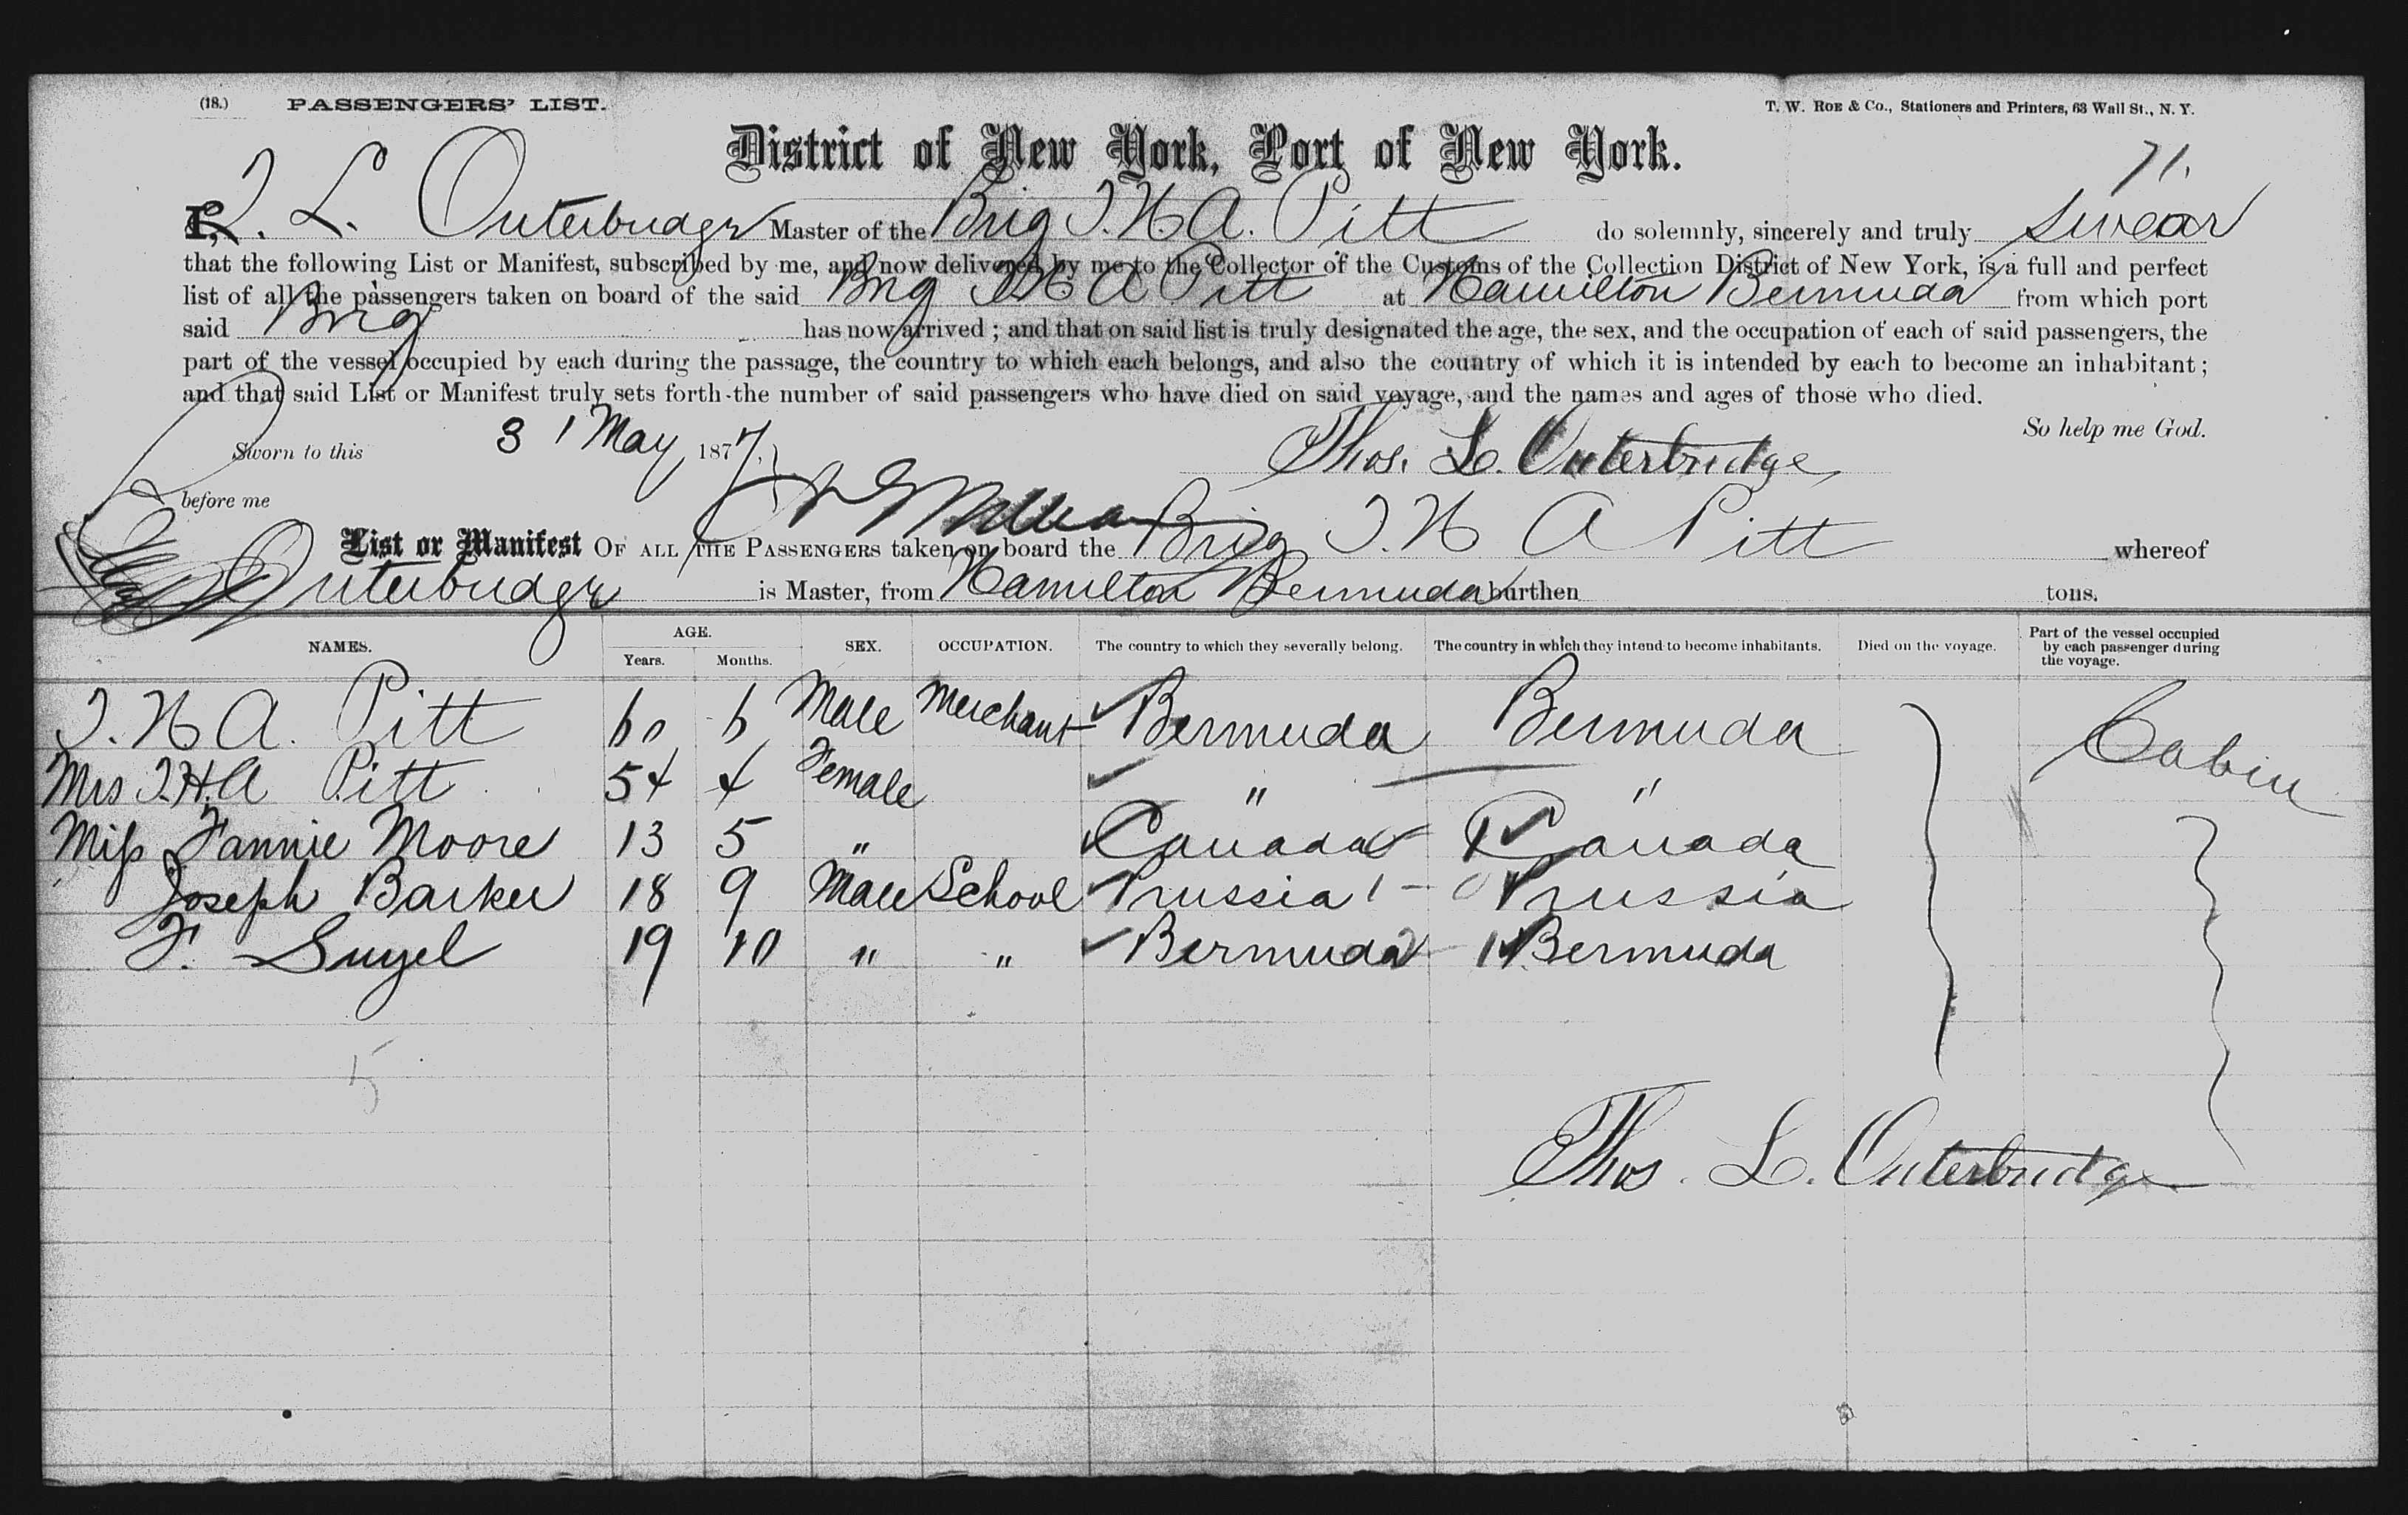 (18.) PASSENGERS' LIST. T. W. ROE & Co., Stationers and Printers, 63 Wall St., N. Y.
District of New York, Port of New York.
71.
I, T. L. Outerbridge Master of the Brig T. H. A. Pitt do solemnly, sincerely and truly swear
that the following List or Manifest, subscribed by me, and now delivered by me to the Collector of the Customs of the Collection District of New York, is a full and perfect
list of all the passengers taken on board of the said Brig T H A Pitt at Hamilton Bermuda from which port
said Brig has now arrived ; and that on said list is truly designated the age, the sex, and the occupation of each of said passengers, the
part of the vessel occupied by each during the passage, the country to which each belongs, and also the country of which it is intended by each to become an inhabitant ;
and that said List or Manifest truly sets forth the number of said passengers who have died on said voyage, and the names and ages of those who died.
So help me God.
Sworn to this 31 May 1877. Thos. L. Outerbridge
before me
List or Manifest OF ALL THE PASSENGERS taken on board the Brig T. H A Pitt whereof
Outerbridge is Master, from Hamilton Bermuda burthen tons.
NAMES. AGE. Years. Months. SEX. OCCUPATION. The country to which they severally belong. The country in which they intend to become inhabitants. Died on the voyage. Part of the vessel occupied by each passenger during the voyage.
T. H A. Pitt 60 6 Male Merchant Bermuda Bermuda Cabin
Mrs T. H. A Pitt 54 4 Female " "
Miss Fannie Moore 13 5 " Canada Canada
Joseph Barker 18 9 Male School Prussia Prussia
F. 19 10 " " Bermuda Bermuda
5
Thos. L. Outerbridge